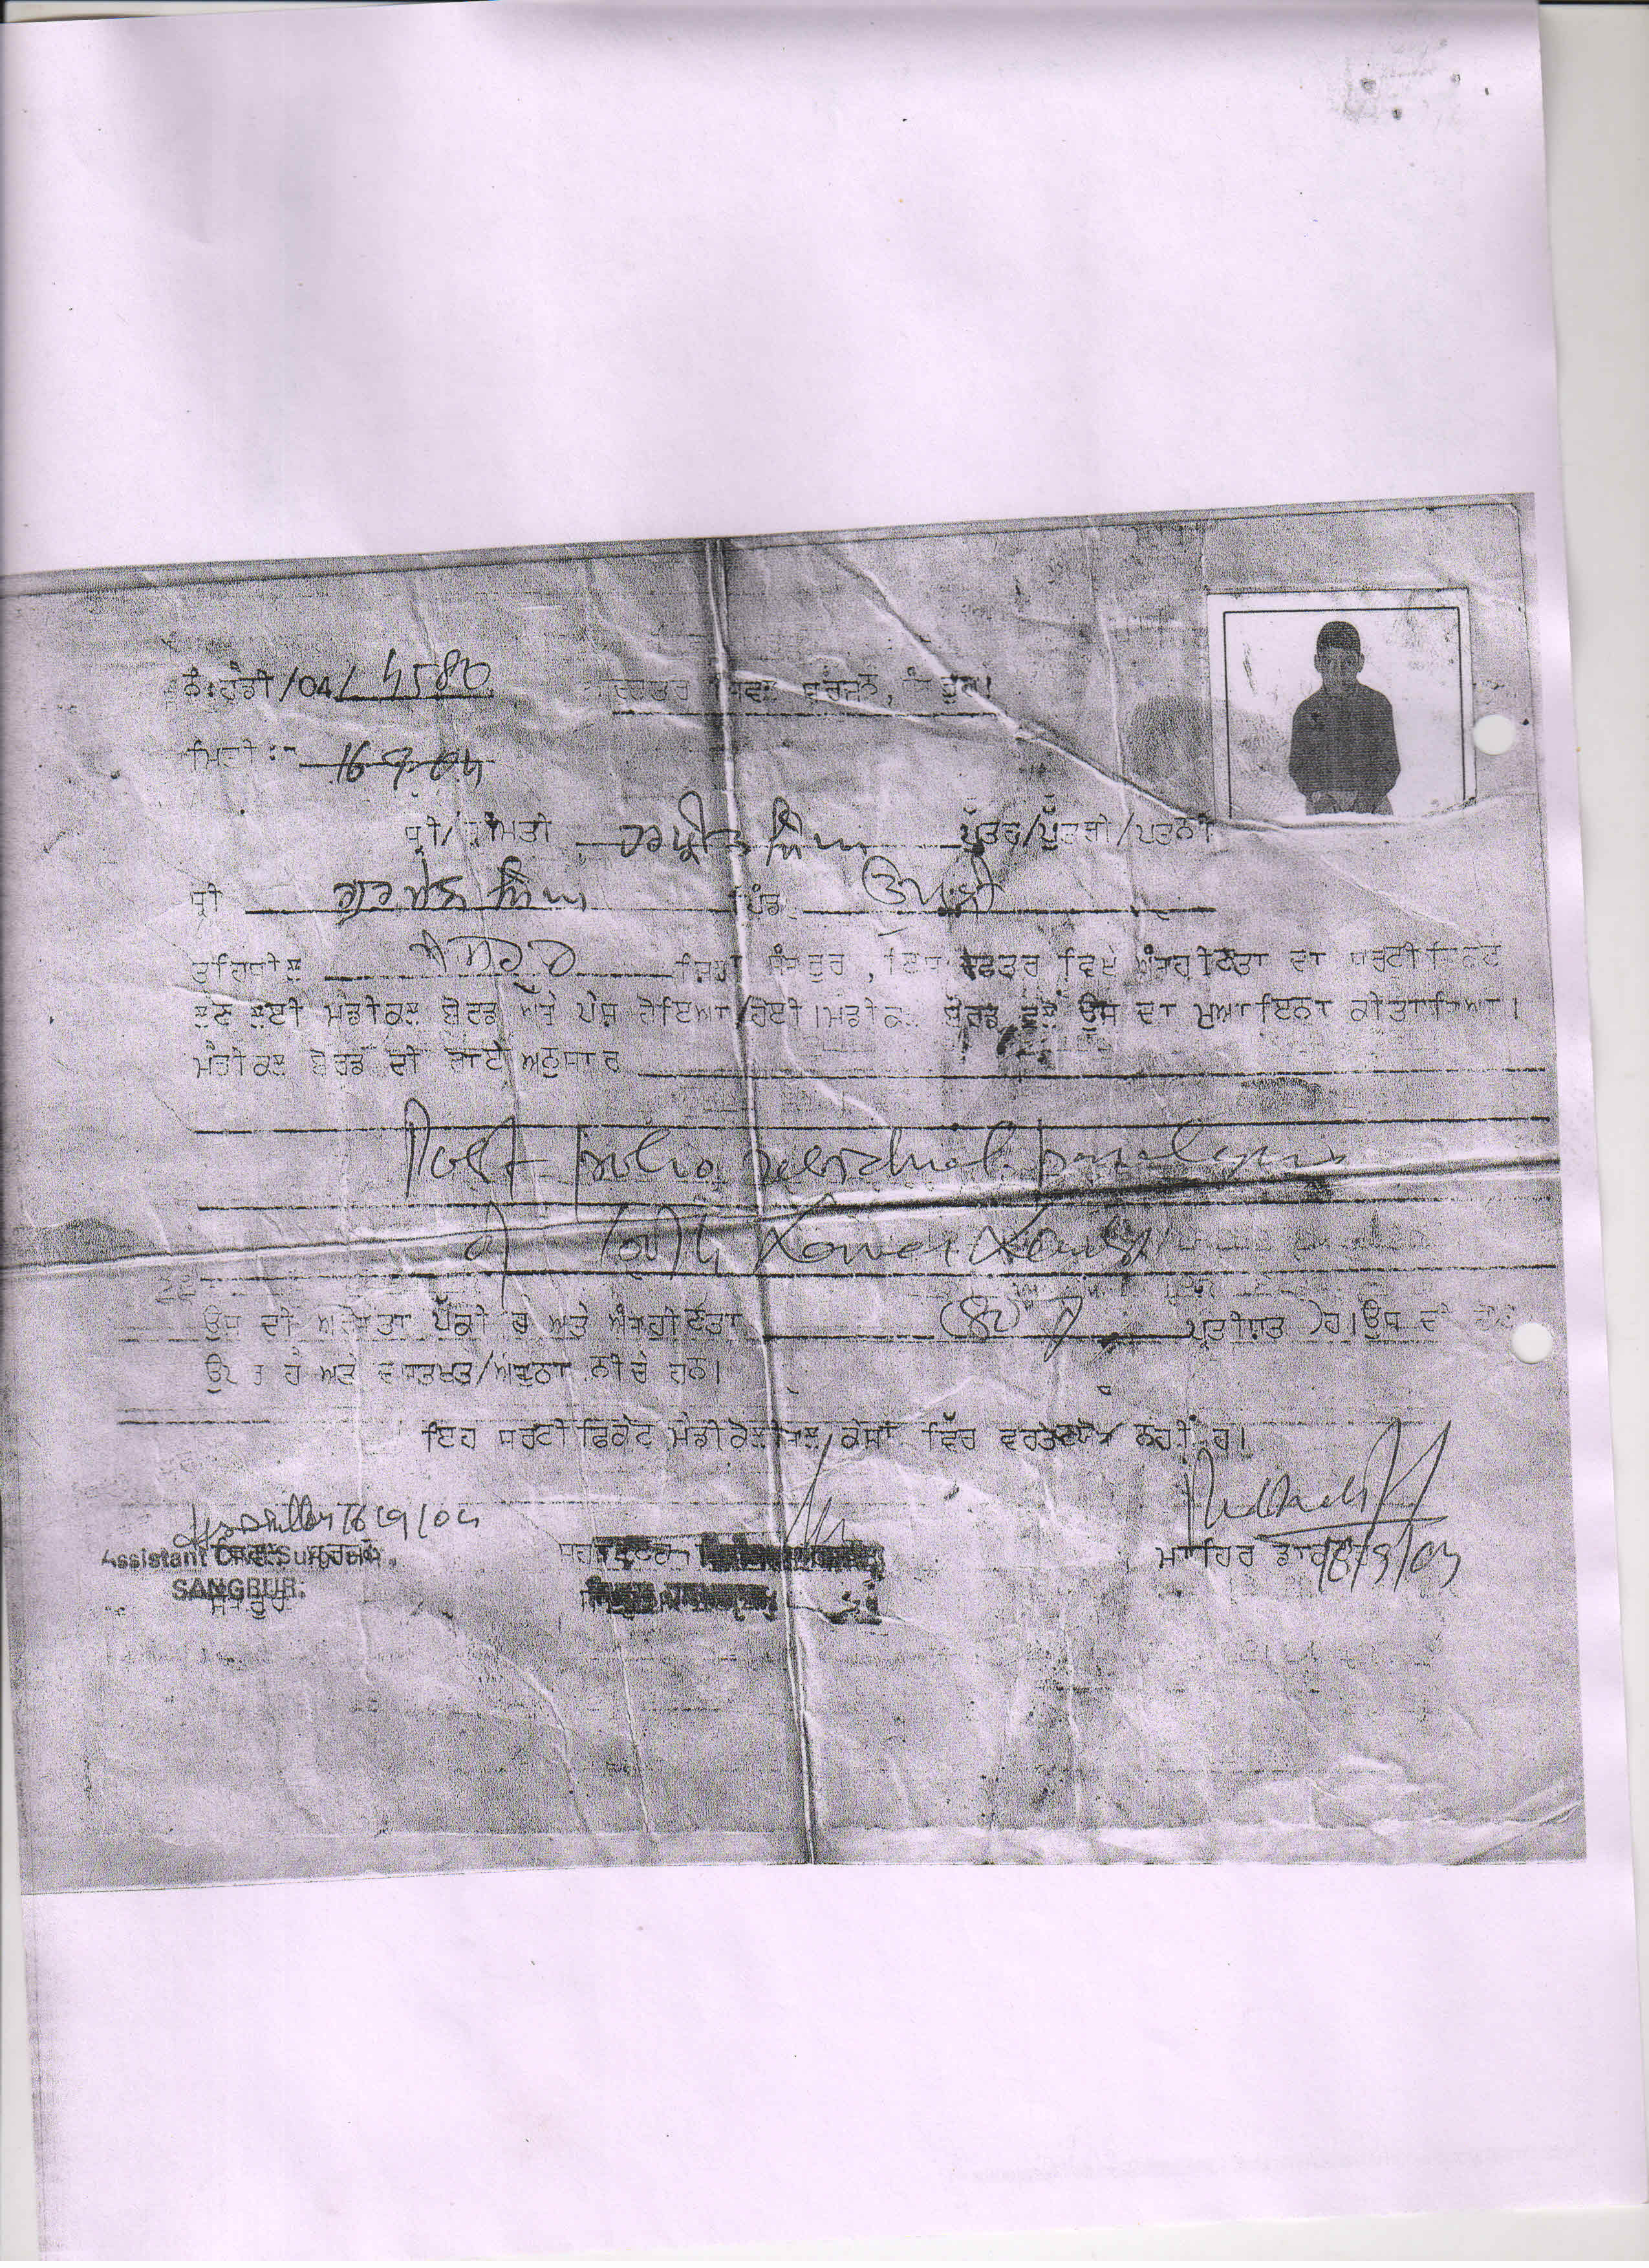 ਨੰ:ਹੈਂਡੀ/04/ 4580
ਦਫਤਰ ਸਿਵਲ ਸਰਜਨ,
ਮਿਤੀ:- 16-9-04
ਸ਼੍ਰੀ/ਸ਼੍ਰੀਮਤੀ ਹਰਪ੍ਰੀਤ ਸਿੰਘ ਪੁੱਤਰ/ਪੁੱਤਰੀ/ਪਤਨੀ
ਸ਼੍ਰੀ ਗੁਰਮੇਲ ਸਿੰਘ ਪਿੰਡ
ਤਹਿਸੀਲ ਸੰਗਰੂਰ ਜਿਲਾ ਸੰਗਰੂਰ, ਇਸ ਦਫਤਰ ਵਿਖੇ ਅੰਗਹੀਣਤਾ ਦਾ ਸਰਟੀਫਿਕੇਟ
ਲੈਣ ਲਈ ਮੈਡੀਕਲ ਬੋਰਡ ਅੱਗੇ ਪੇਸ਼ ਹੋਇਆ/ਹੋਈ।ਮੈਡੀਕਲ ਬੋਰਡ ਵਲੋਂ ਉਸ ਦਾ ਮੁਆਇਨਾ ਕੀਤਾ ਗਿਆ।
ਮੈਡੀਕਲ ਬੋਰਡ ਦੀ ਰਾਏ ਅਨੁਸਾਰ
Post polio residual paralysis
of both Lower Limbs
ਉਸ ਦੀ ਅਯੋਗਤਾ ਪੱਕੀ ਹੈ ਅਤੇ ਅੰਗਹੀਣਤਾ (80 %) ਪ੍ਰਤੀਸ਼ਤ ਹੈ।ਉਸ ਦੀ
ਉਪਰ ਹੈ ਅਤੇ ਦਸਤਖਤ/ਅੰਗੂਠਾ ਨੀਚੇ ਹਨ।
ਇਹ ਸਰਟੀਫਿਕੇਟ ਮੈਡੀਕੋਲੀਗਲ ਕੇਸਾਂ ਵਿੱਚ ਵਰਤਣਯੋਗ ਨਹੀਂ ਹੈ।
16/9/04
Assistant Civil Surgeon
ਸਿਵਲ ਸਰਜਨ
ਮਾਹਿਰ ਡਾਕਟਰ
SANGRUR.
ਸੰਗਰੂਰ